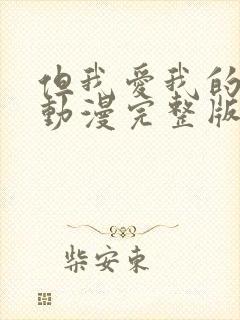 但我愛我的
動漫完整版
柴安東